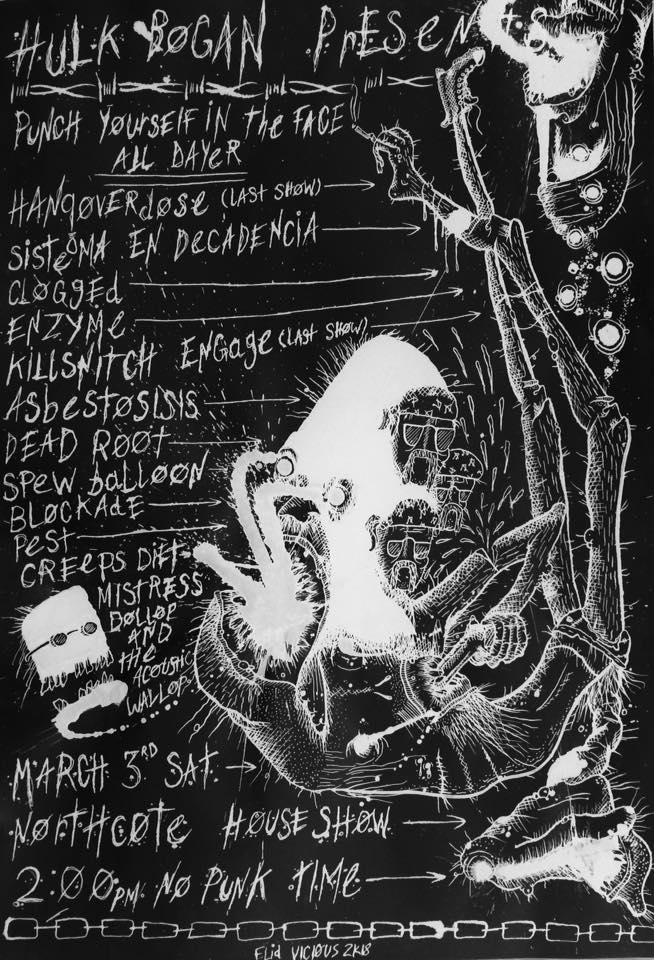 HULK BØGAN PrESeNTS
PUNCH YØurSELF iN the FACE
ALL DAYeR
HANgØVERdØse (LAST SHOW)
SisteØMA EN DeCADENCiA
CLØGGEd
ENZYMe
KILLSNiTCH ENGage (LAST SHØW)
ASbESTØSISiS
DEAD RØØt
SPeW bALLØØN
BLØCKAdE
PeST
CREEPS DiEt
MISTRESS
BØLLØP
AND
the
ACØUSTiC
WALLØP
MARCH 3RD SAT.
NØrtHCØte HØUSE SHØW
2:00PM. NØ PUNK TiMe
FLid ViCiØUS 2K18